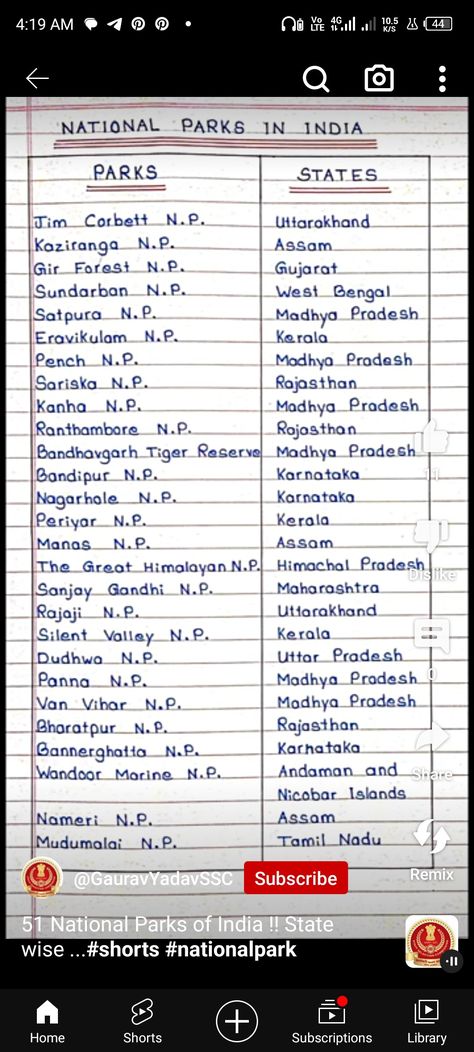 4:19 AM
Vo LTE 4G 10.5 K/S 44
NATIONAL PARKS IN INDIA
PARKS STATES
Jim Corbett N.P. Uttarakhand
Kaziranga N.P. Assam
Gir Forest N.P. Gujarat
Sundarban N.P. West Bengal
Satpura N.P. Madhya Pradesh
Eravikulam N.P. Kerala
Pench N.P. Madhya Pradesh
Sariska N.P. Rajasthan
Kanha N.P. Madhya Pradesh
Ranthambore N.P. Rajasthan
Bandhavgarh Tiger Reserve Madhya Pradesh
Bandipur N.P. Karnataka
Nagarhole N.P. Karnataka
Periyar N.P. Kerala
Manas N.P. Assam
The Great Himalayan N.P. Himachal Pradesh
Sanjay Gandhi N.P. Maharashtra
Rajaji N.P. Uttarakhand
Silent Valley N.P. Kerala
Dudhwa N.P. Uttar Pradesh
Panna N.P. Madhya Pradesh
Van Vihar N.P. Madhya Pradesh
Bharatpur N.P. Rajasthan
Bannerghatta N.P. Karnataka
Wandoor Marine N.P. Andaman and
Nicobar Islands
Nameri N.P. Assam
Mudumalai N.P. Tamil Nadu
11
Dislike
0
Share
Remix
@GauravYadavSSC Subscribe
51 National Parks of India !! State
wise ...#shorts #nationalpark
Home Shorts Subscriptions Library